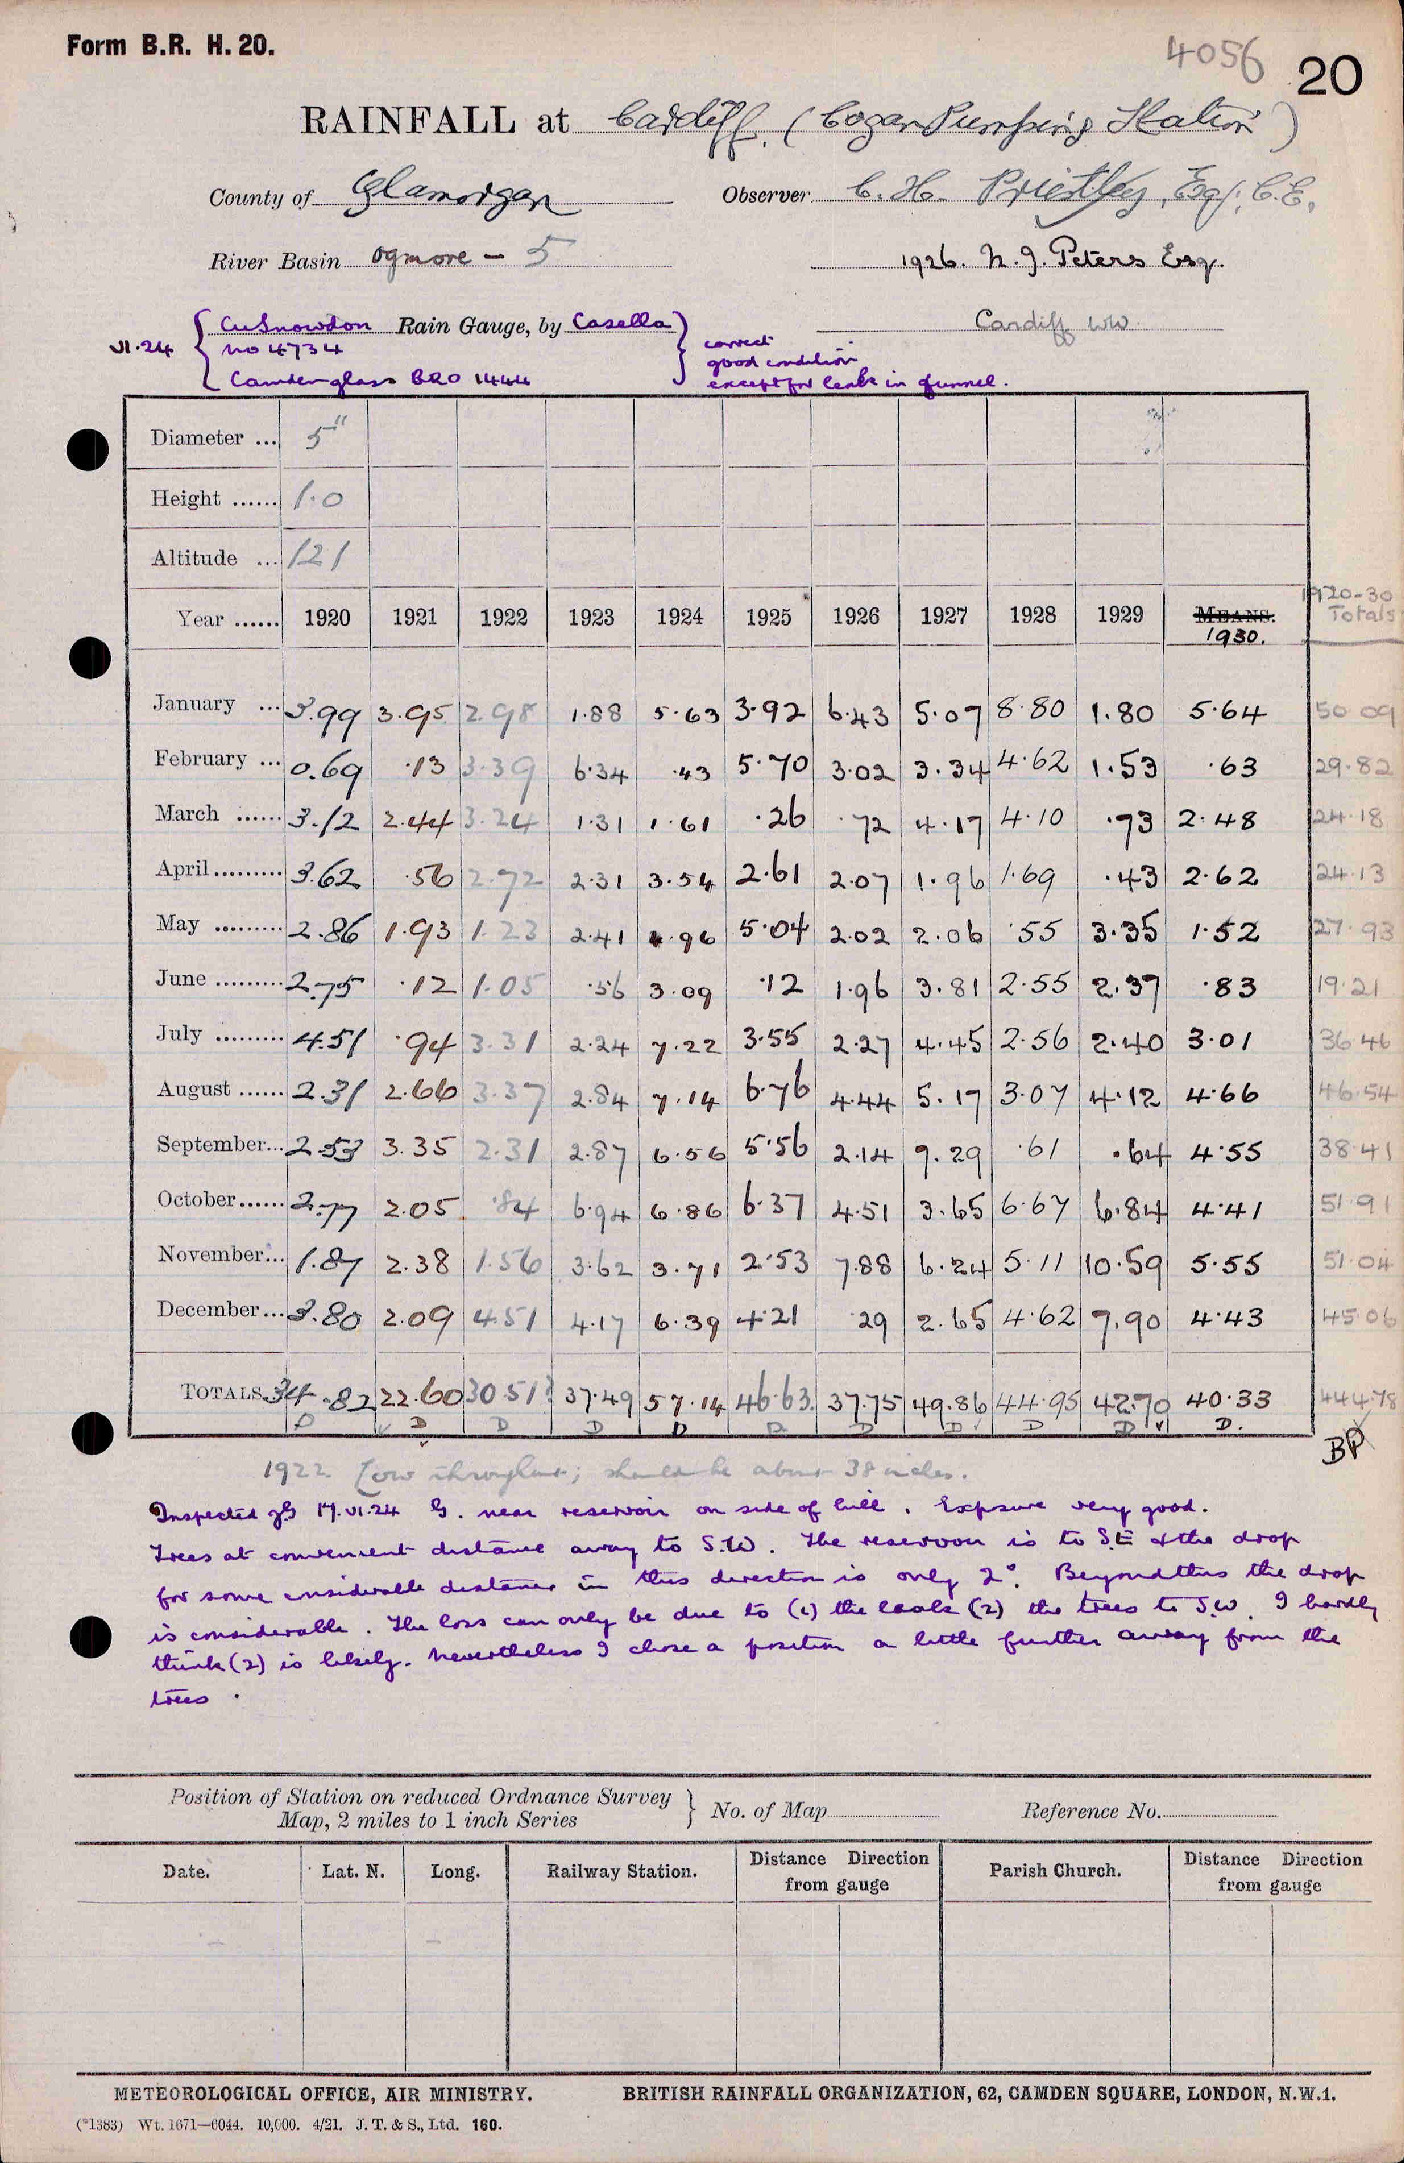 Form B.R. H. 20.
4056
20
RAINFALL at Cardiff. (Cogan Pumping Station)
County of Glamorgan Observer C. H. Priestley, Esq, C.E.
River Basin Ogmore - 5 1926. N. J. Peters Esq.
Cardiff WW
VI.24 { Cu Snowdon Rain Gauge, by Casella } correct
No 4734 good condition
Camden glass BRO 1444 except for leak in funnel.
Diameter ... 5"
Height ...... 1.0
Altitude ... 121
Year ...... 1920 1921 1922 1923 1924 1925 1926 1927 1928 1929 MEANS. 1930. 1920-30 Totals
January ... 3.99 3.95 2.98 1.88 5.63 3.92 6.43 5.07 8.80 1.80 5.64 50.09
February ... 0.69 .13 3.39 6.34 .43 5.70 3.02 3.34 4.62 1.53 .63 29.82
March ...... 3.12 2.44 3.24 1.31 1.61 .26 .72 4.17 4.10 .73 2.48 24.18
April ......... 3.62 .56 2.72 2.31 3.54 2.61 2.07 1.96 1.69 .43 2.62 24.13
May ......... 2.86 1.93 1.23 2.41 4.96 5.04 2.02 2.06 .55 3.35 1.52 27.93
June ......... 2.75 .12 1.05 .56 3.09 .12 1.96 3.81 2.55 2.37 .83 19.21
July ......... 4.51 .94 3.31 2.24 7.22 3.55 2.27 4.45 2.56 2.40 3.01 36.46
August ...... 2.31 2.66 3.37 2.84 7.14 6.76 4.44 5.17 3.07 4.12 4.66 46.54
September... 2.53 3.35 2.31 2.87 6.56 5.56 2.14 7.29 .61 .64 4.55 38.41
October...... 2.77 2.05 .84 6.94 6.86 6.37 4.51 3.65 6.67 6.84 4.41 51.91
November... 1.87 2.38 1.56 3.62 3.71 2.53 7.88 6.24 5.11 10.59 5.55 51.04
December... 3.80 2.09 4.51 4.17 6.39 4.21 .29 2.65 4.62 7.90 4.43 45.06
TOTALS 34.82 22.60 30.51? 37.49 57.14 46.63 37.75 49.86 44.95 42.70 40.33 444.78
D D D D D D D D D D D.
BP
1922 Low throughout; should be about 38 inches.
Inspected JG 17.VI.24 G. near reservoir on side of hill. Exposure very good.
Trees at convenient distance away to S.W. The reservoir is to S.E & the drop
for some considerable distance in this direction is only 2°. Beyond this the drop
is considerable. The loss can only be due to (1) the leak (2) the trees to S.W. I hardly
think (2) is likely. Nevertheless I chose a position a little further away from the
trees.
Position of Station on reduced Ordnance Survey
Map, 2 miles to 1 inch Series } No. of Map Reference No.
Date. Lat. N. Long. Railway Station. Distance Direction from gauge Parish Church. Distance Direction from gauge
METEOROLOGICAL OFFICE, AIR MINISTRY. BRITISH RAINFALL ORGANIZATION, 62, CAMDEN SQUARE, LONDON, N.W.1.
(*1383) Wt. 1671—6044. 10,000. 4/21. J. T. & S., Ltd. 160.